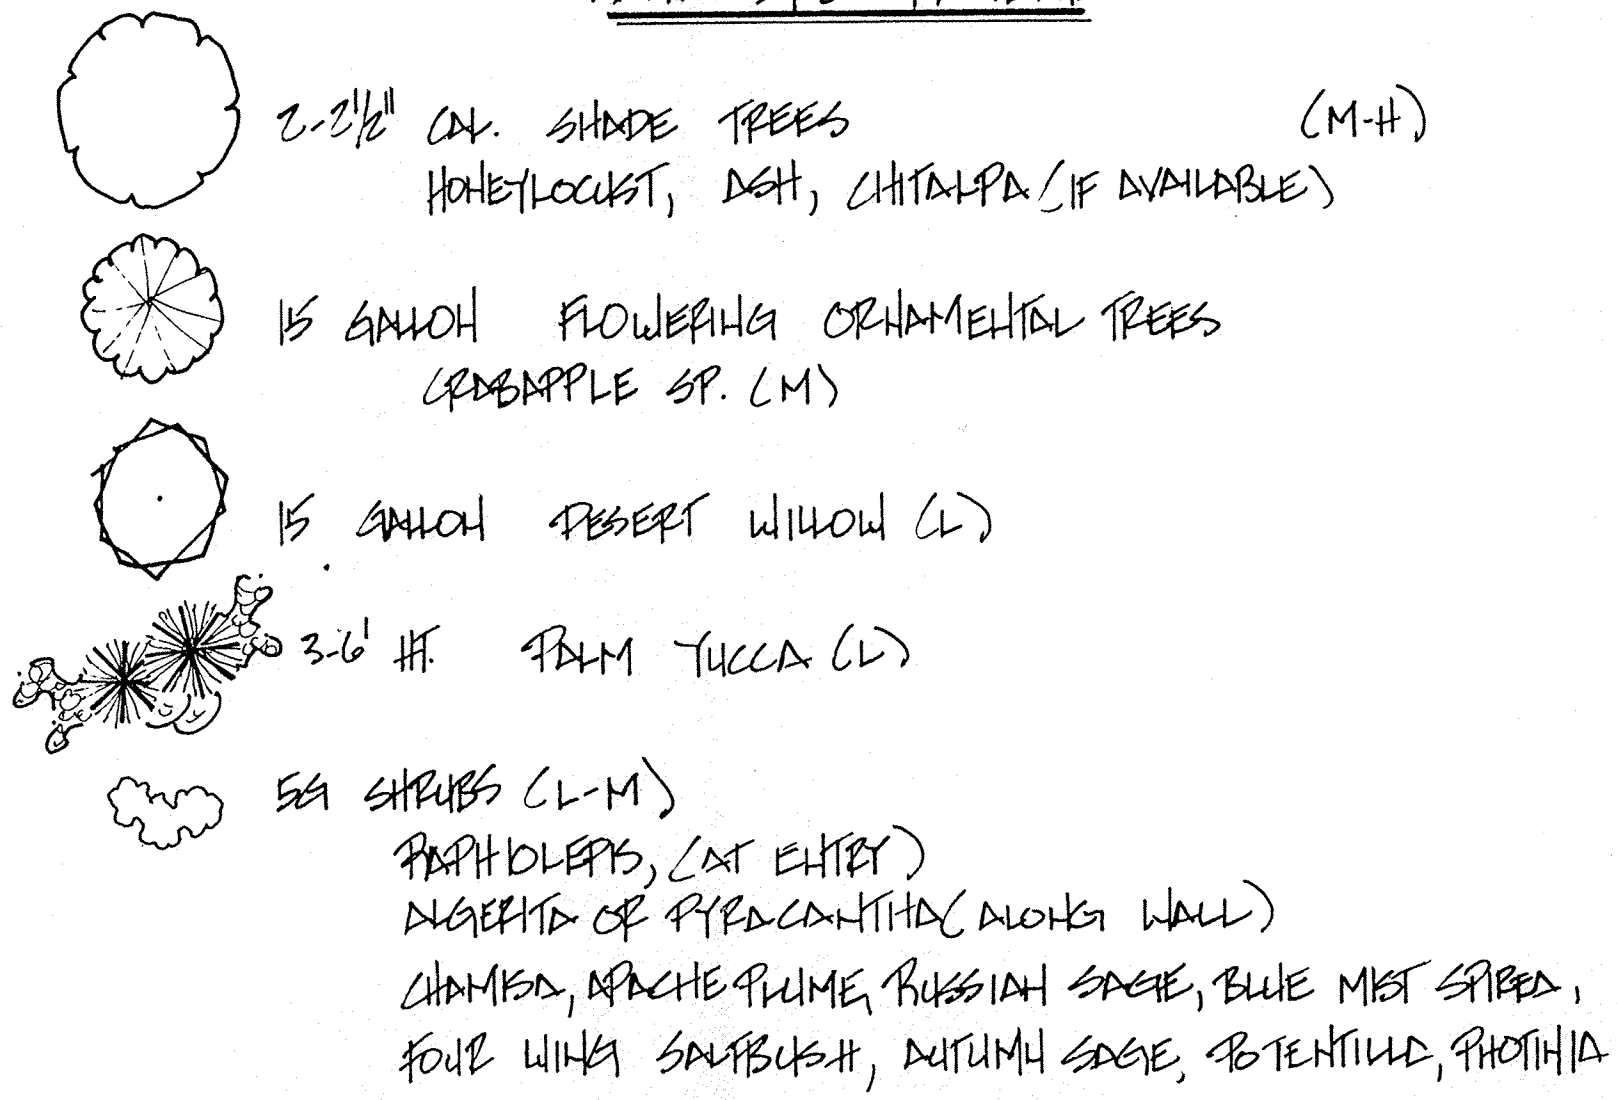 2-2½" CAL. SHADE TREES (M-H)
HONEYLOCUST, ASH, CHITALPA (IF AVAILABLE)
15 GALLON FLOWERING ORNAMENTAL TREES
CRABAPPLE SP. (M)
15 GALLON DESERT WILLOW (L)
3-6' HT. PALM YUCCA (L)
5G SHRUBS (L-M)
RAPHIOLEPIS, (AT ENTRY)
ALGERITA OR PYRACANTHA (ALONG WALL)
CHAMISA, APACHE PLUME, RUSSIAN SAGE, BLUE MIST SPIREA,
FOUR WING SALTBUSH, AUTUMN SAGE, POTENTILLA, PHOTINIA